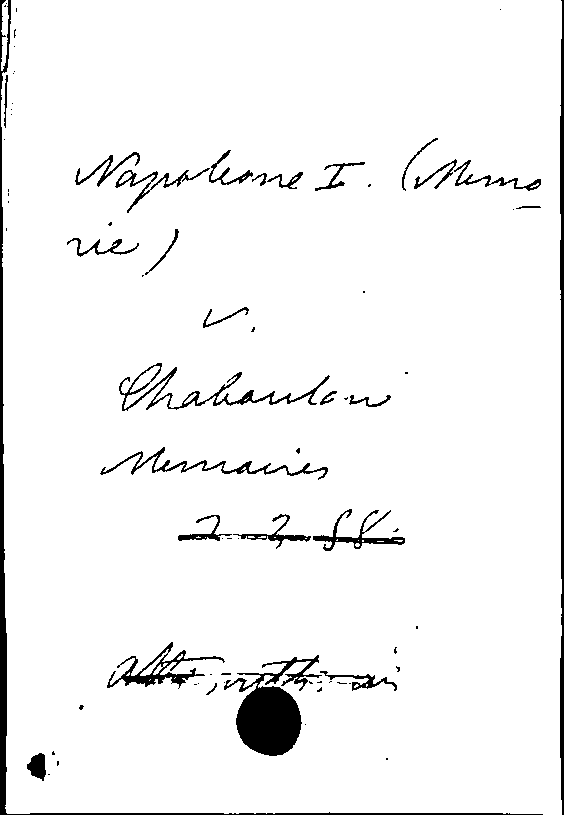 Napoleone I. (Memo
rie)
v.
Chaboulon
Memoires
2 2 88.